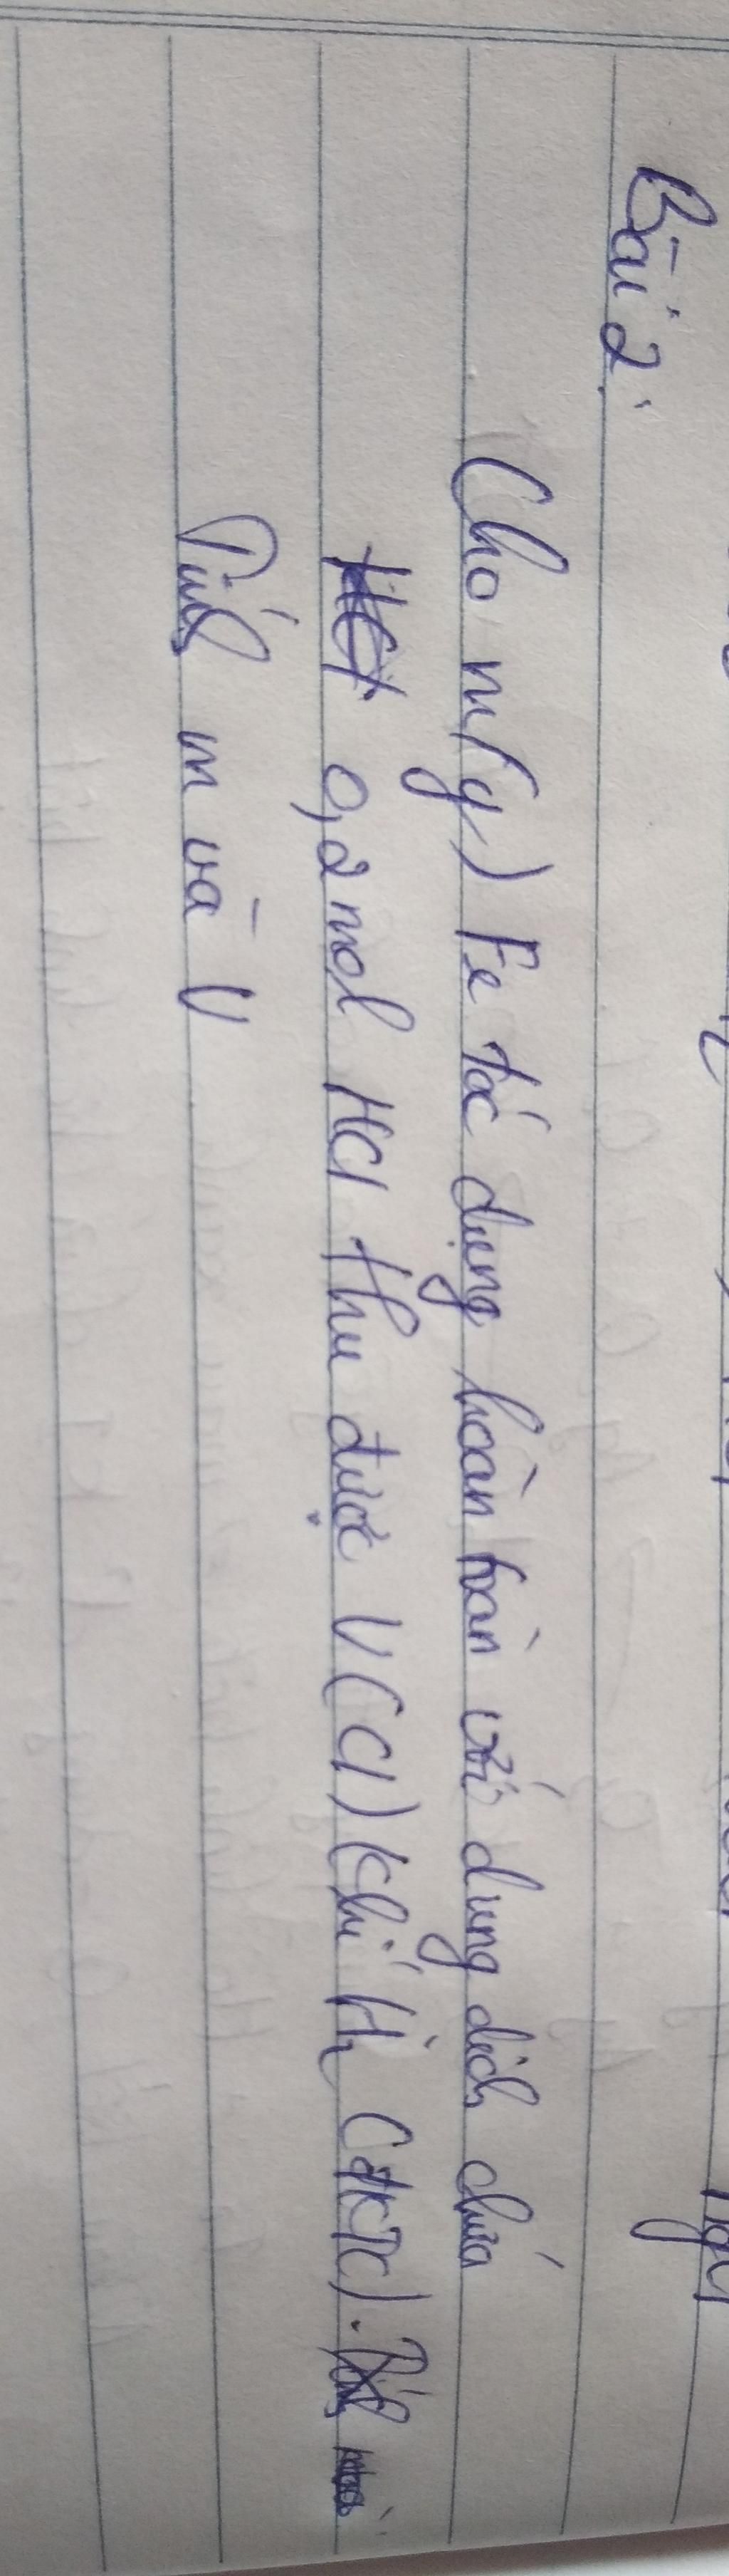 Bài 2:
Cho m(g) Fe tác dụng hoàn toàn với dung dịch chứa
HCl 0,2 mol HCl thu được V(Cl) khí H2 (ĐKTC). Tính
Tính m và V